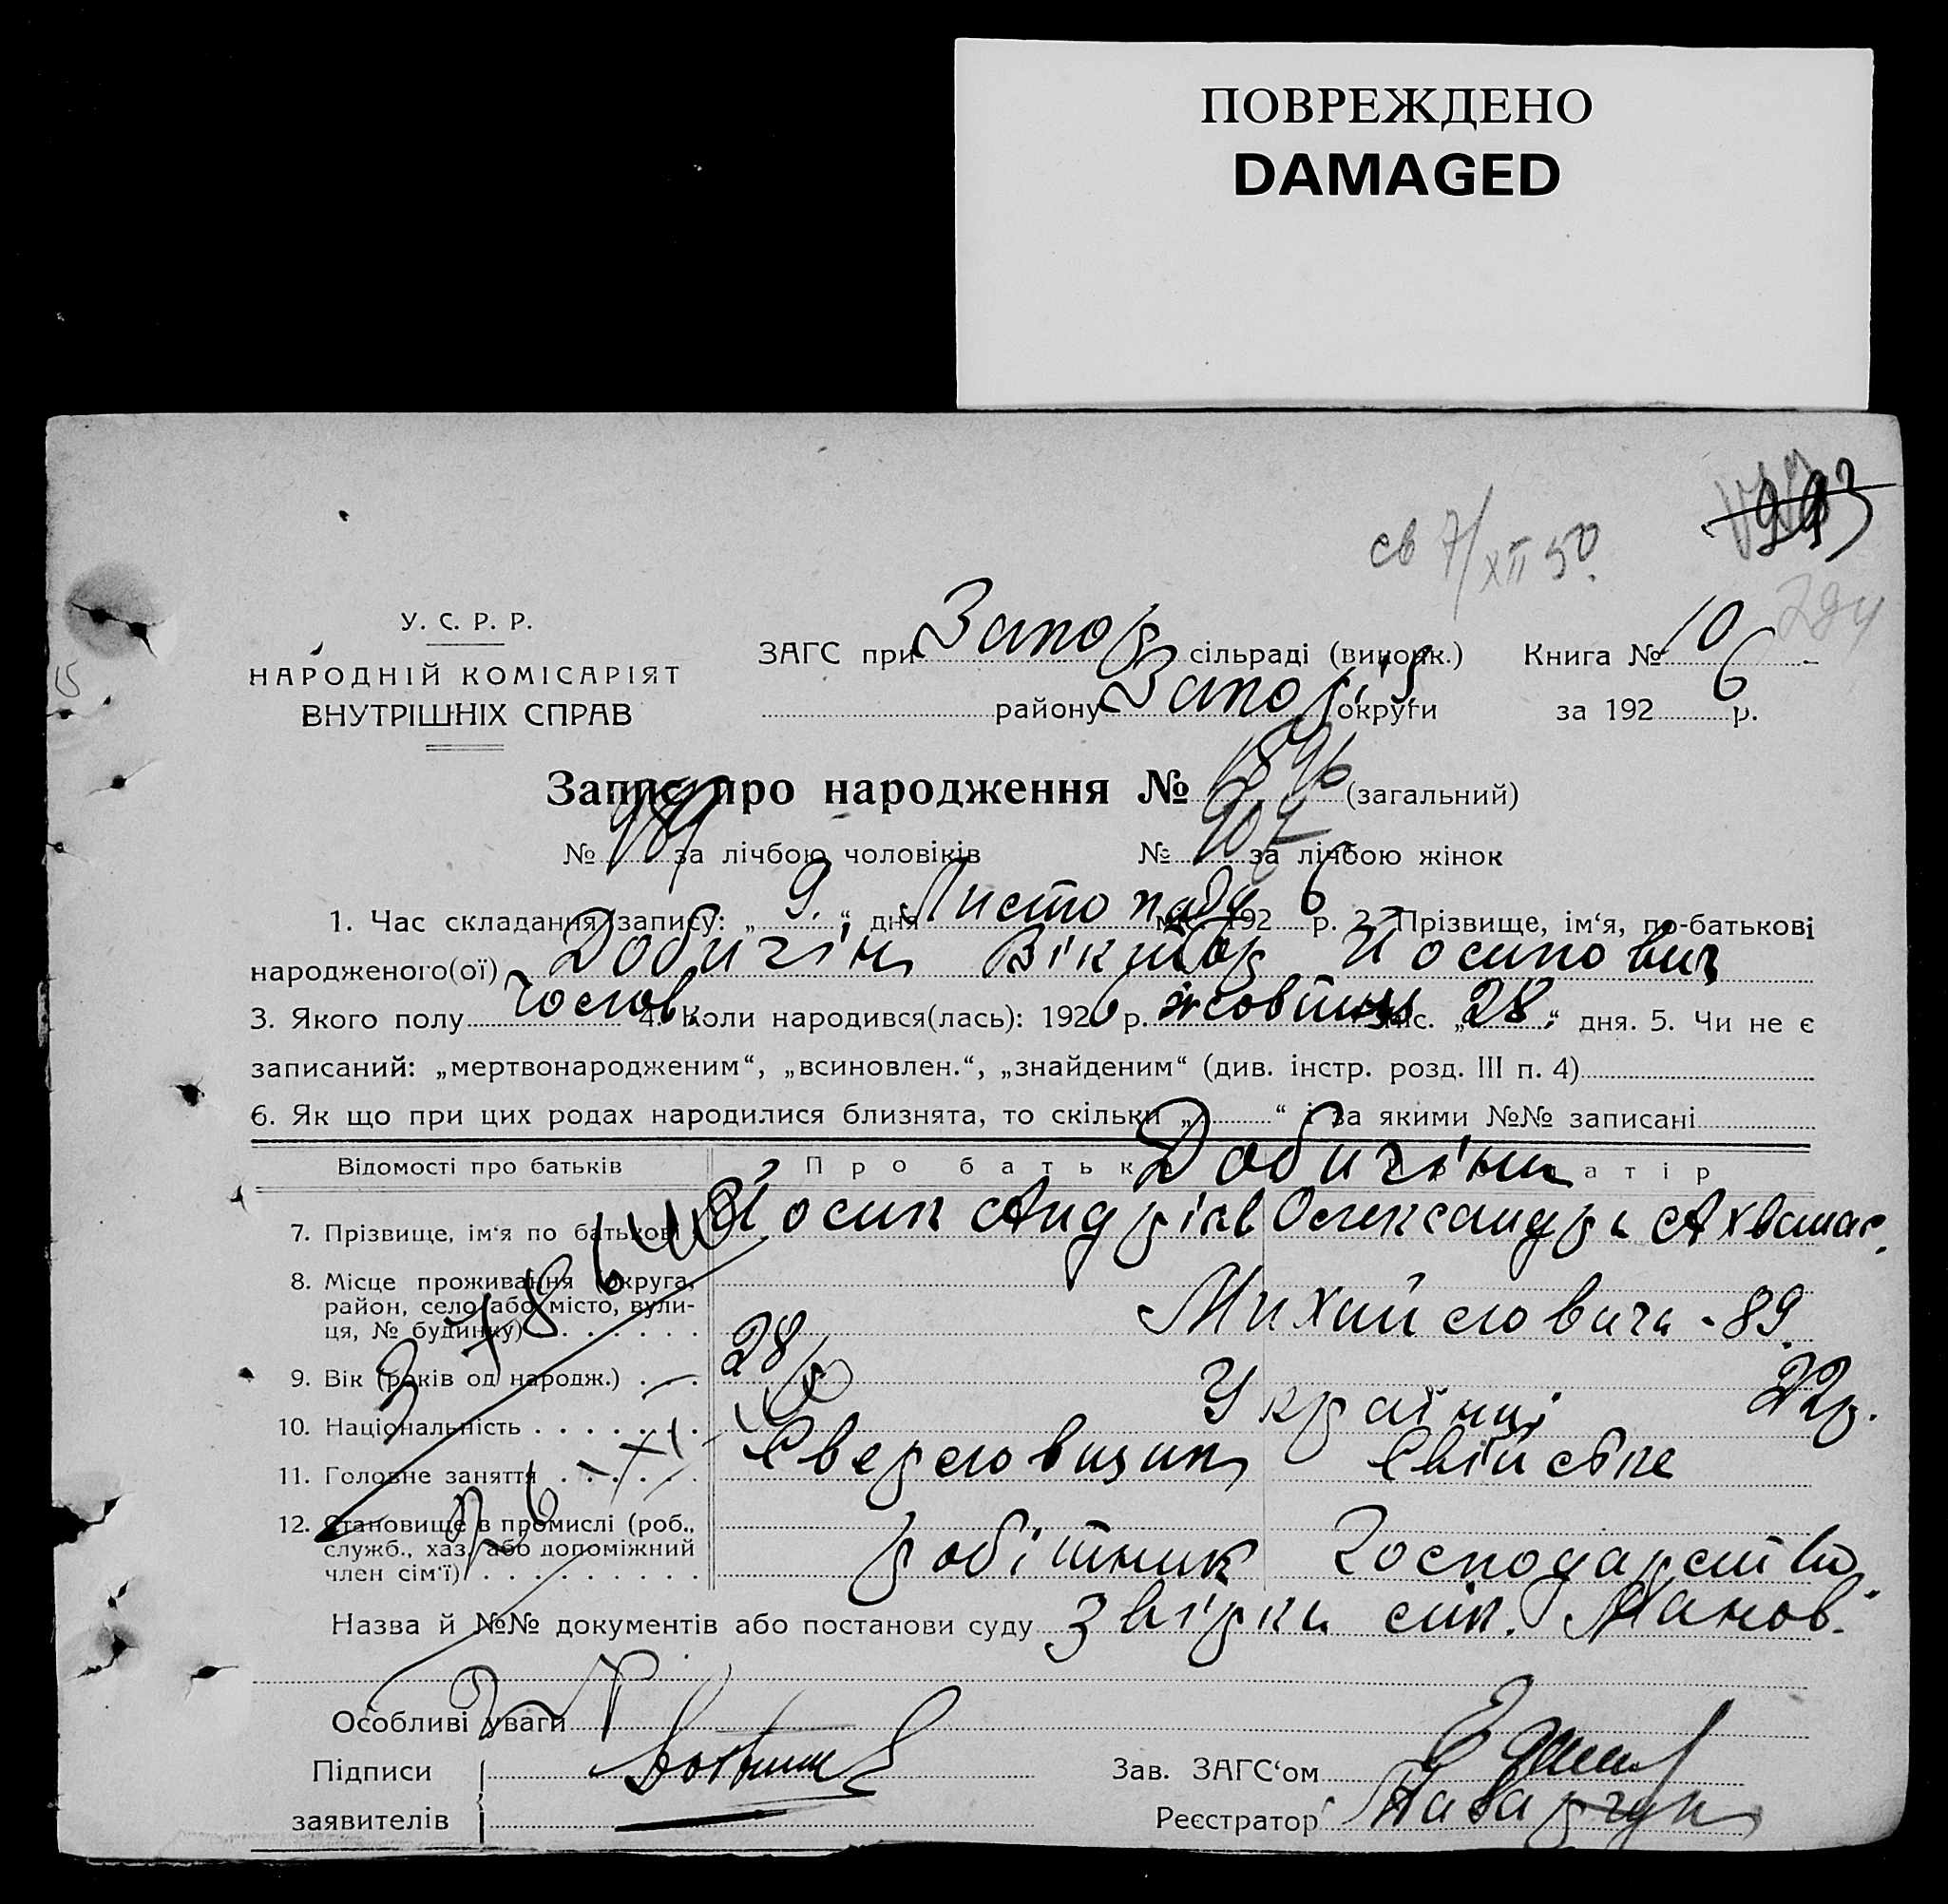 ПОВРЕЖДЕНО
DAMAGED
св 7/XII 50.
293
294
У. С. Р. Р.
НАРОДНІЙ КОМІСАРІЯТ
ВНУТРІШНІХ СПРАВ
ЗАГС при Запор сільраді (виконк.) Книга № 10
району Запоріз округи за 1926 р.
Запис про народження № 1896 (загальний)
№ 989 за лічбою чоловіків № 907 за лічбою жінок
1. Час складання запису: „ 9. “ дня Листопаду міс. 1926 р. 2. Прізвище, ім‘я, по-батькові
народженого(ої) Добичін Віктор Йосипович
3. Якого полу чолов. 4. Коли народився(лась): 1926 р. жовтня міс. „ 28. “ дня. 5. Чи не є
записаний: „мертвонародженим“, „всиновлен.“, „знайденим“ (див. інстр. розд. III п. 4)
6. Як що при цих родах народилися близнята, то скільки „ “ і за якими №№ записані
Відомості про батьків Про батька Добичіни матір
7. Прізвище, ім‘я по батькові Йосип Андрієв Олександра Ахванас.
8. Місце проживання (округа,
район, село або місто, вули-
ця, № будинку) Михайловича - 89.
9. Вік (років од народж.) 28 22р.
10. Національність Українці
11. Головне заняття Сверловщик Свійське
12. Становище в промислі (роб.,
служб., хаз. або допоміжний
член сім‘ї) робітник Господарство.
Назва й №№ документів або постанови суду Звірка
Особливі уваги
Підписи
заявителів
Зав. ЗАГС‘ом
Реєстратор